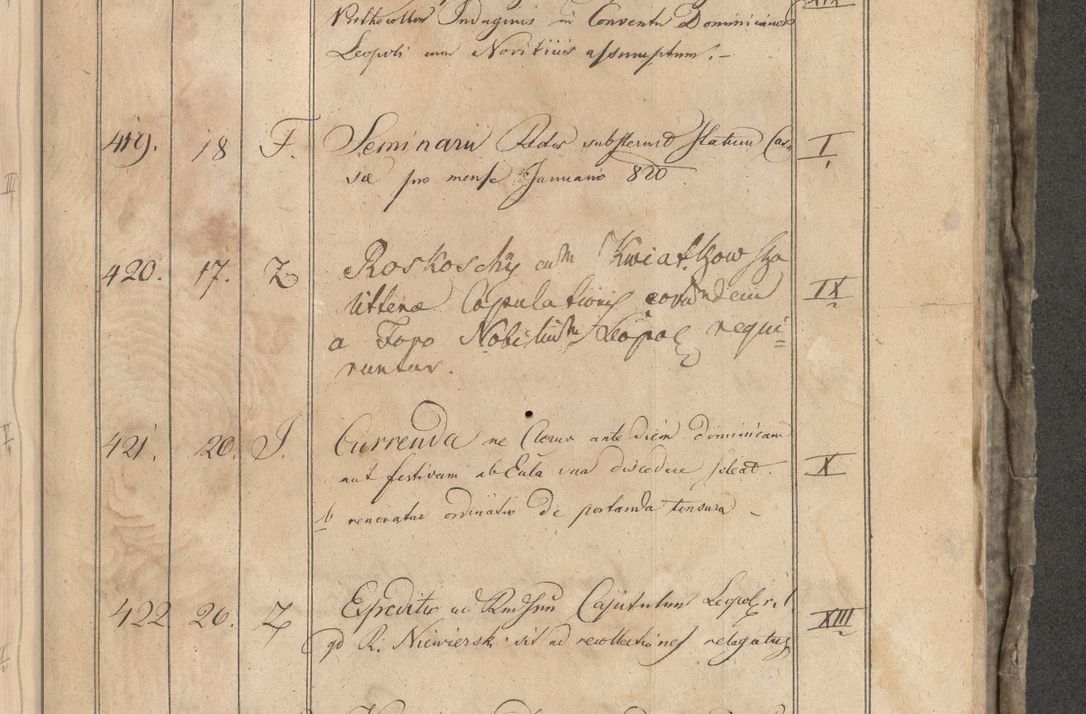 Indaginis in Conventu Dominicanor
Leopoli cum Novitiis assumptum. –
419. 18 F. Seminarii Rector substernit Statum Cas- I
sæ pro mense Januario 820
420. 17. Z Roskoschÿ cum Kwiatkowska IX
litteræ Copulationis eorundem
a Foro Nobilium Leopol requi=
runtur.
421. 20. J. Currenda ne Clerus ante diem dominicam X
aut festivam ab Ecclā sua discedere soleat.
renovatur ordinatio de portanda tonsura –
422 20. Z Expeditio ad Capitulum Leopol r. l XIII
qd R. Niewiersk: sit ad recollectiones relegatus